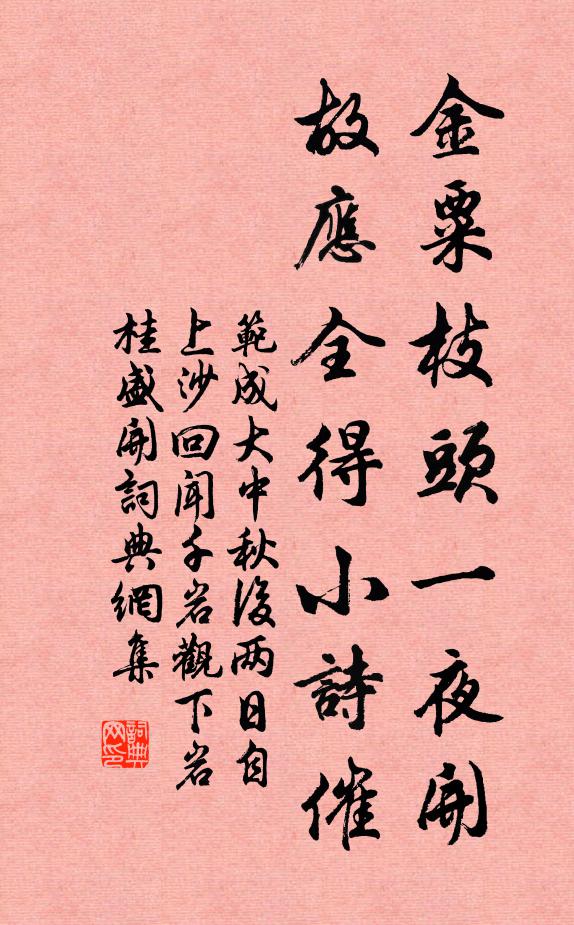 金粟枝頭一夜開
故應全得小詩催
範成大中秋後两日自
上沙回聞千岩觀下岩
桂盛開詞典網集
詞典
网印